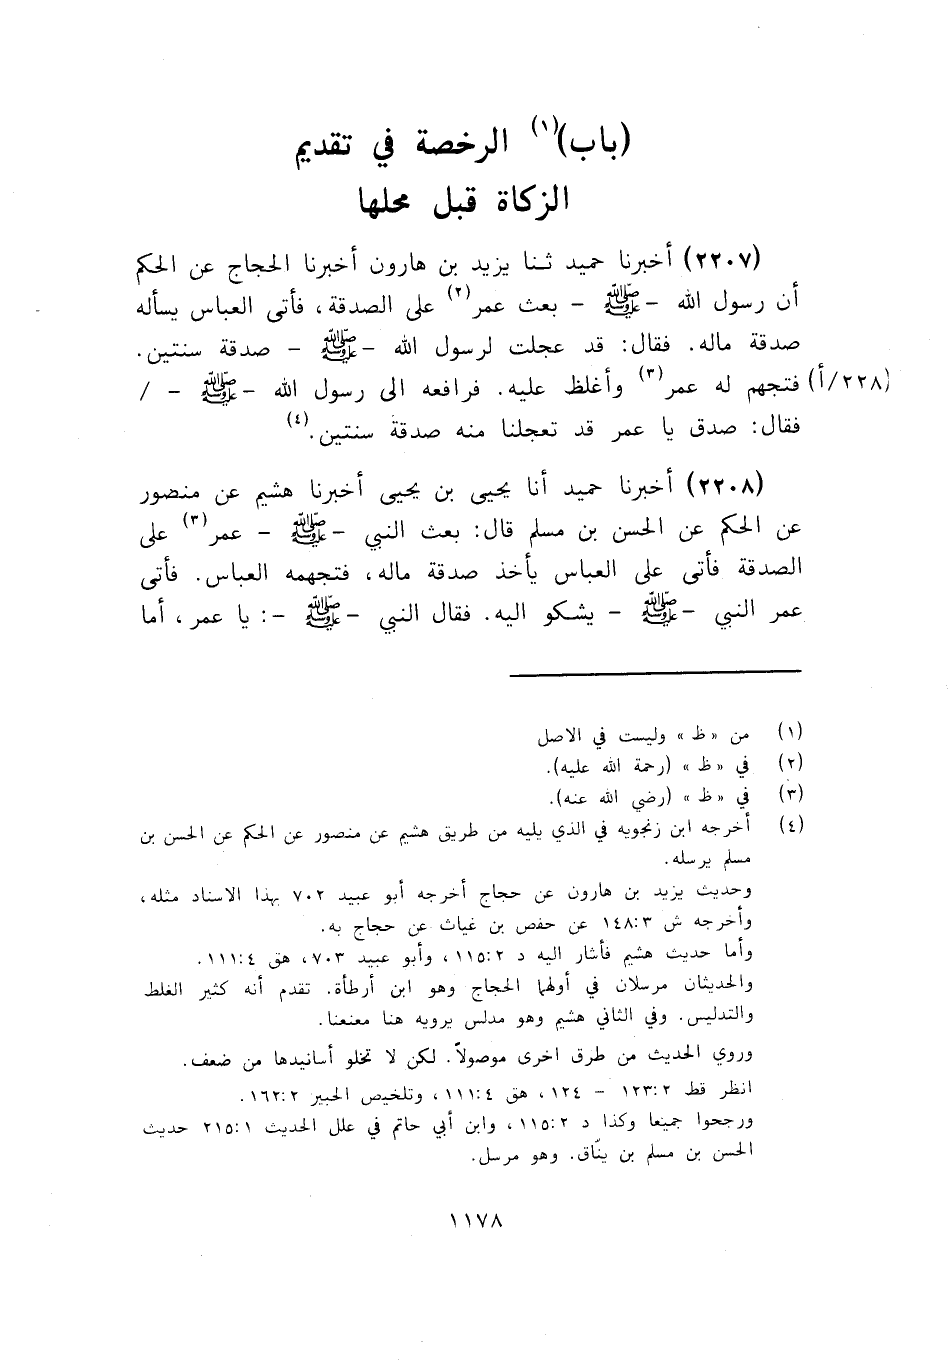 (باب)(١) الرخصة في تقديم
الزكاة قبل محلها
(٢٢٠٧) أخبرنا حميد ثنا يزيد بن هارون أخبرنا الحجاج عن الحكم
أن رسول الله - ﷺ - بعث عمر(٢) على الصدقة، فأتى العباس يسأله
صدقة ماله. فقال: قد عجلت لرسول الله - ﷺ - صدقة سنتين.
(٢٢٨/أ) فتجهم له عمر(٣) وأغلظ عليه. فرافعه الى رسول الله - ﷺ - /
فقال: صدق يا عمر قد تعجلنا منه صدقة سنتين.(٤)
(٢٢٠٨) أخبرنا حميد أنا يحيى بن يحيى أخبرنا هشيم عن منصور
عن الحكم عن الحسن بن مسلم قال: بعث النبي - ﷺ - عمر(٣) على
الصدقة فأتى على العباس يأخذ صدقة ماله، فتجهمه العباس. فأتى
عمر النبي - ﷺ - يشكو اليه. فقال النبي - ﷺ -: يا عمر، أما
(١) من «ظ» وليست في الاصل
(٢) في «ظ» (رحمة الله عليه).
(٣) في «ظ» (رضي الله عنه).
(٤) أخرجه ابن زنجويه في الذي يليه من طريق هشيم عن منصور عن الحكم عن الحسن بن
مسلم يرسله.
وحديث يزيد بن هارون عن حجاج أخرجه أبو عبيد ٧٠٢ بهذا الاسناد مثله،
وأخرجه ش ١٤٨:٣ عن حفص بن غياث عن حجاج به.
وأما حديث هشيم فأشار اليه د ١١٥:٢، وأبو عبيد ٧٠٣، هق ١١١:٤.
والحديثان مرسلان في أولهما الحجاج وهو ابن أرطأة. تقدم أنه كثير الغلط
والتدليس. وفي الثاني هشيم وهو مدلس يرويه هنا معنعنا.
وروي الحديث من طرق اخرى موصولاً. لكن لا تخلو أسانيدها من ضعف.
انظر قط ١٢٣:٢ - ١٢٤، هق ١١١:٤، وتلخيص الحبير ١٦٢:٢.
ورجحوا جميعا وكذا د ١١٥:٢، وابن أبي حاتم في علل الحديث ٢١٥:١ حديث
الحسن بن مسلم بن ينّاق. وهو مرسل.
١١٧٨